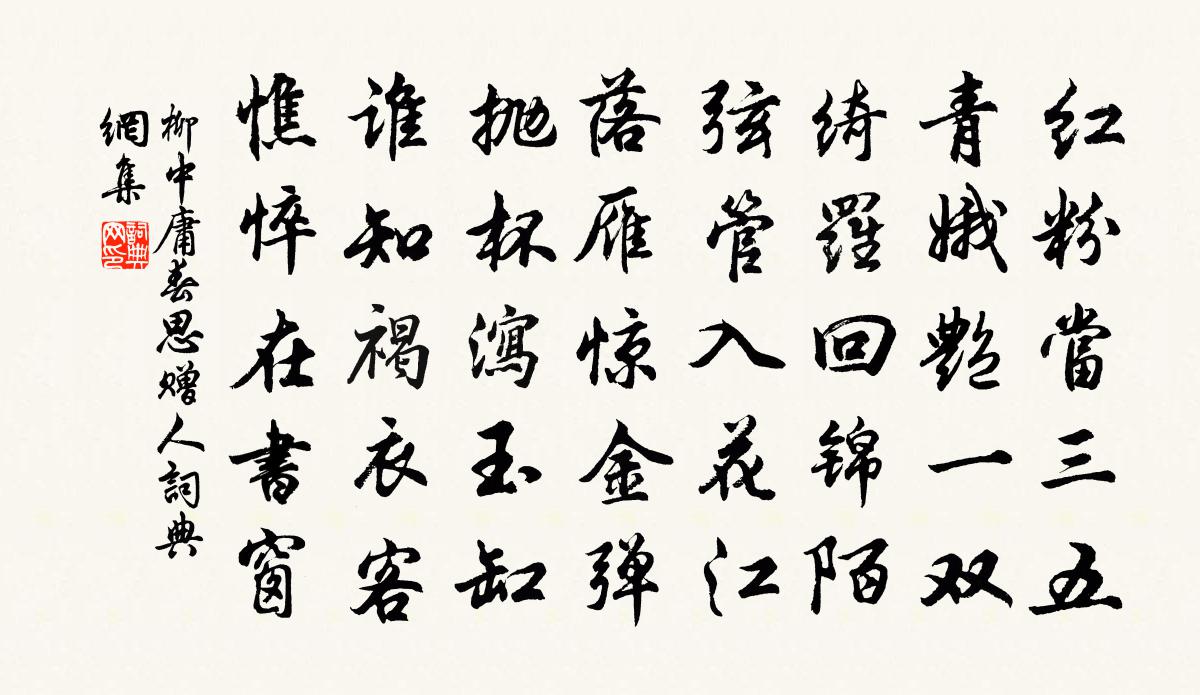 红粉當三五
青娥艷一双
绮羅回锦陌
弦管入花江
落雁惊金弹
抛杯瀉玉缸
谁知褐衣客
憔悴在書窗
柳中庸春思赠人詞典
網集
詞典
网印